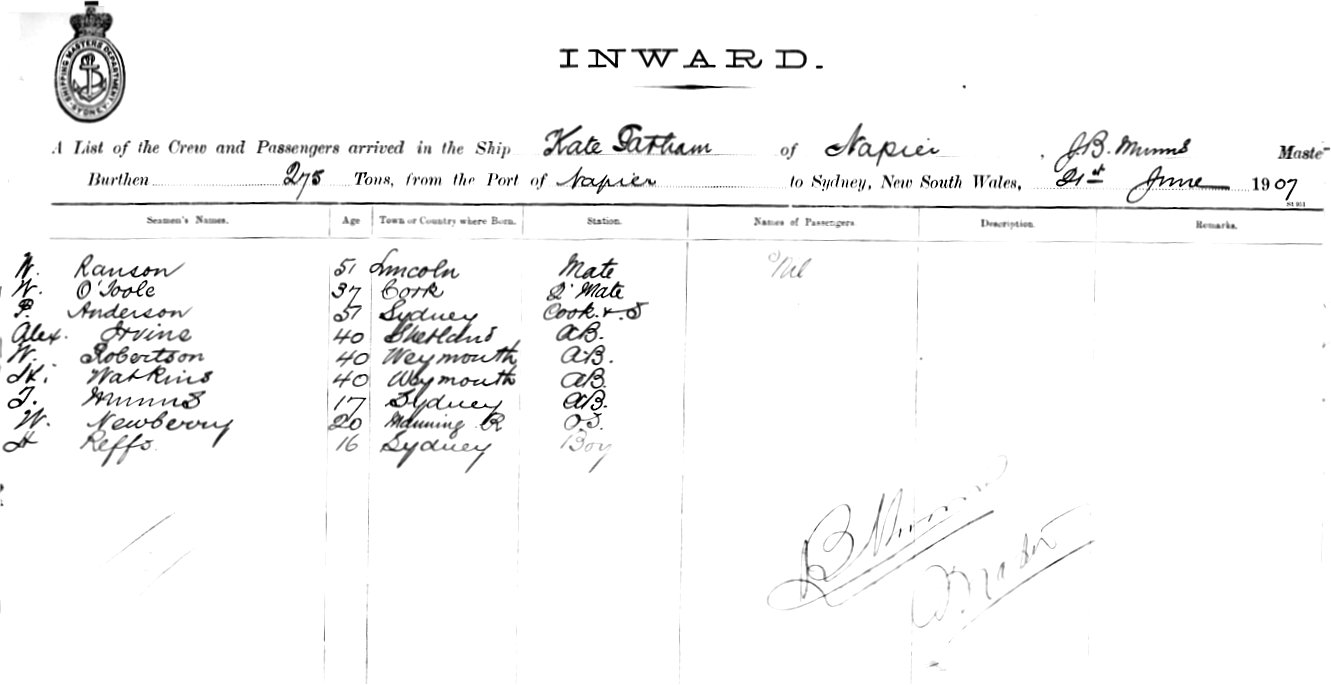 SHIPPING MASTERS DEPARTMENT SYDNEY
INWARD.
A List of the Crew and Passengers arrived in the Ship Kate Tatham of Napier, J.B. Munns Master
Burthen 275 Tons, from the Port of Napier to Sydney, New South Wales, 21st June 1907
Seamen's Names. Age Town or Country where Born. Station. Names of Passengers Description. Remarks.
W. Ranson 51 Lincoln Mate Nil
W. O'Toole 37 Cork 2' Mate
P. Anderson 51 Sydney Cook & S
Alex. Irvine 40 Shetland AB.
W. Robertson 40 Weymouth AB.
Watkins 40 Weymouth AB.
T. Munns 17 Sydney AB.
W. Newberry 20 Manning R O.S.
H Reffs. 16 Sydney Boy
JB Munns
Master